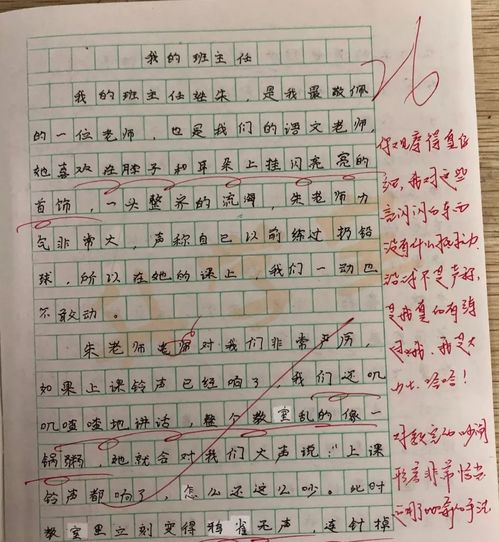 我的班主任
我的班主任姓朱，是我最敬佩
的一位老师，也是我们的语文老师，
她喜欢在脖子和耳朵上挂闪亮亮的
首饰，一头整齐的流海，朱老师力
气非常大，声称自己以前练过扔铅
球，所以在她的课上，我们一动也
不敢动。
朱老师老师对我们非常严厉，
如果上课铃声已经响了，我们还叽
叽喳喳地讲话，整个教室乱的像一
锅粥，她就会对我们大声说：“上课
铃声都响了，怎么还这么吵。此时
教室里立刻变得鸦雀无声，连针掉
26
你观察得
我对这些
闪闪的东西
没有什么抵抗力
哈哈！
对教室的吵闹
形容非常恰当
运用了